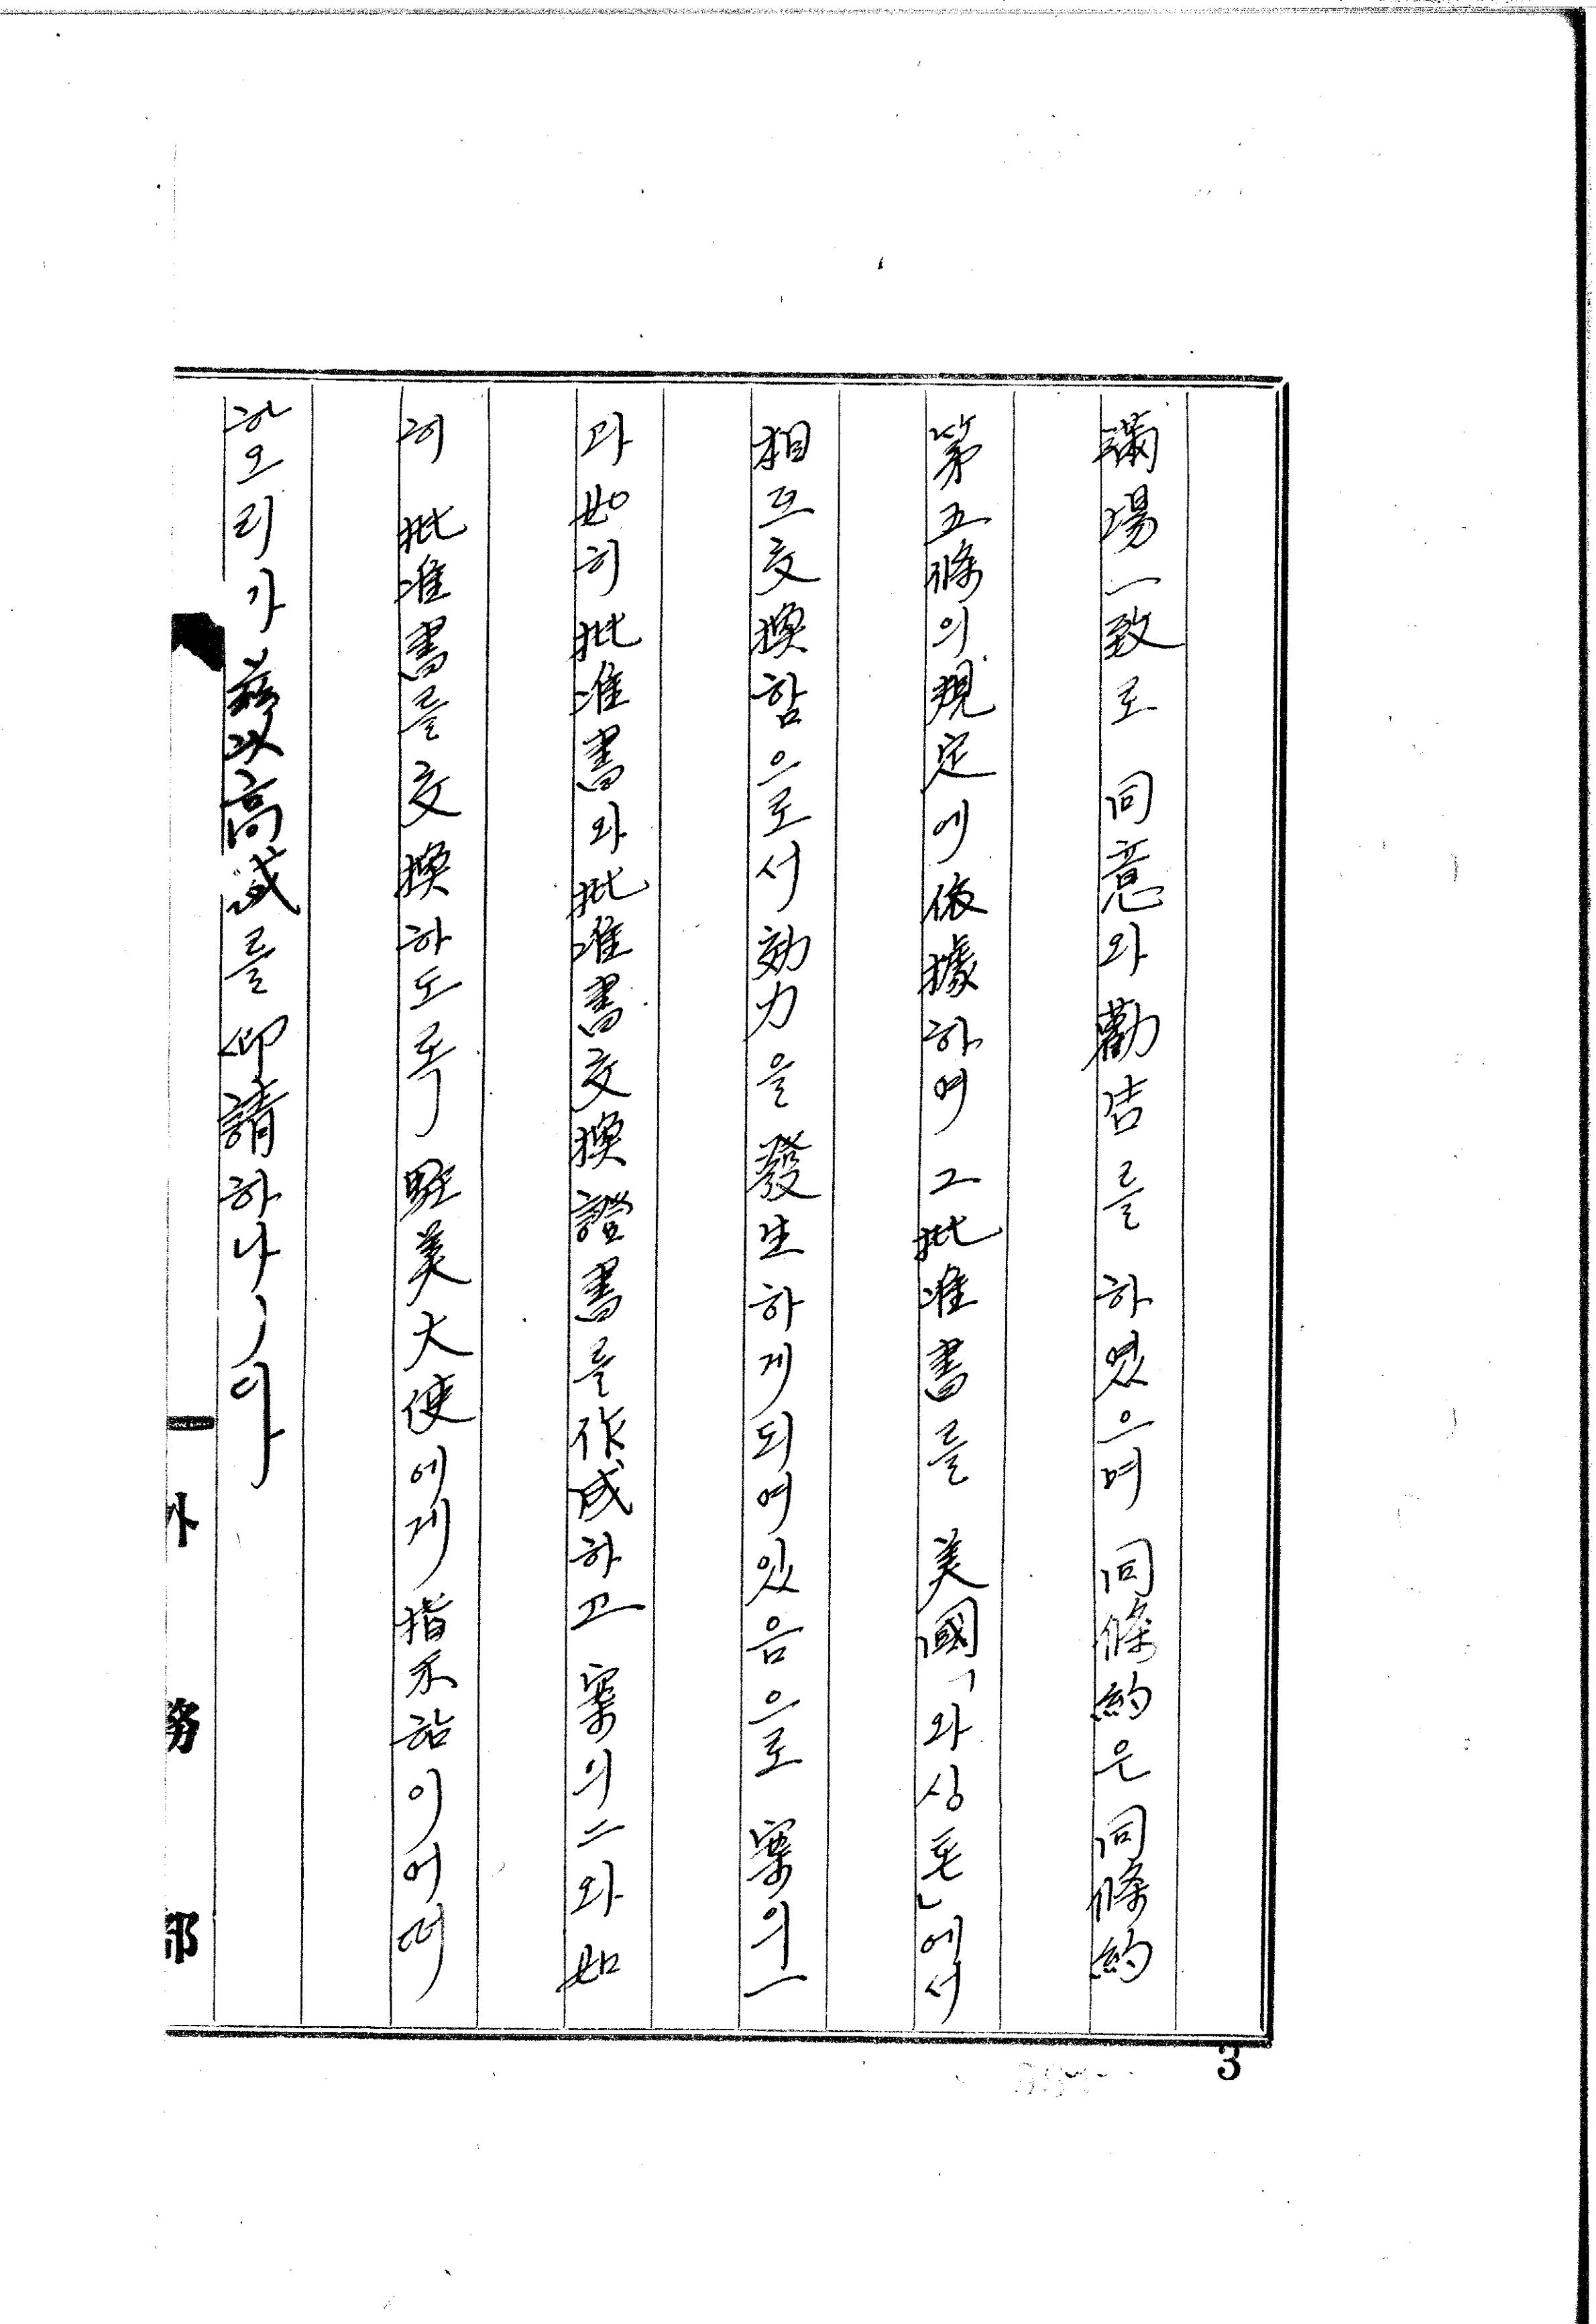 滿場一致로 同意와 勸告를 하였으며 同條約은 同條約
第五條의 規定에 依據하여 그 批准書를 美國「와싱톤」에서
相互交換함으로서 効力을 發生하게 되여있음으로 案의一
과 如히 批准書와 批准書交換證書를 作成하고 案의二와 如
히 批准書를 交換하도록 駐美大使에게 指示하심이 어떠
하오리가 玆以 高裁를 仰請하나이다
外務部
3